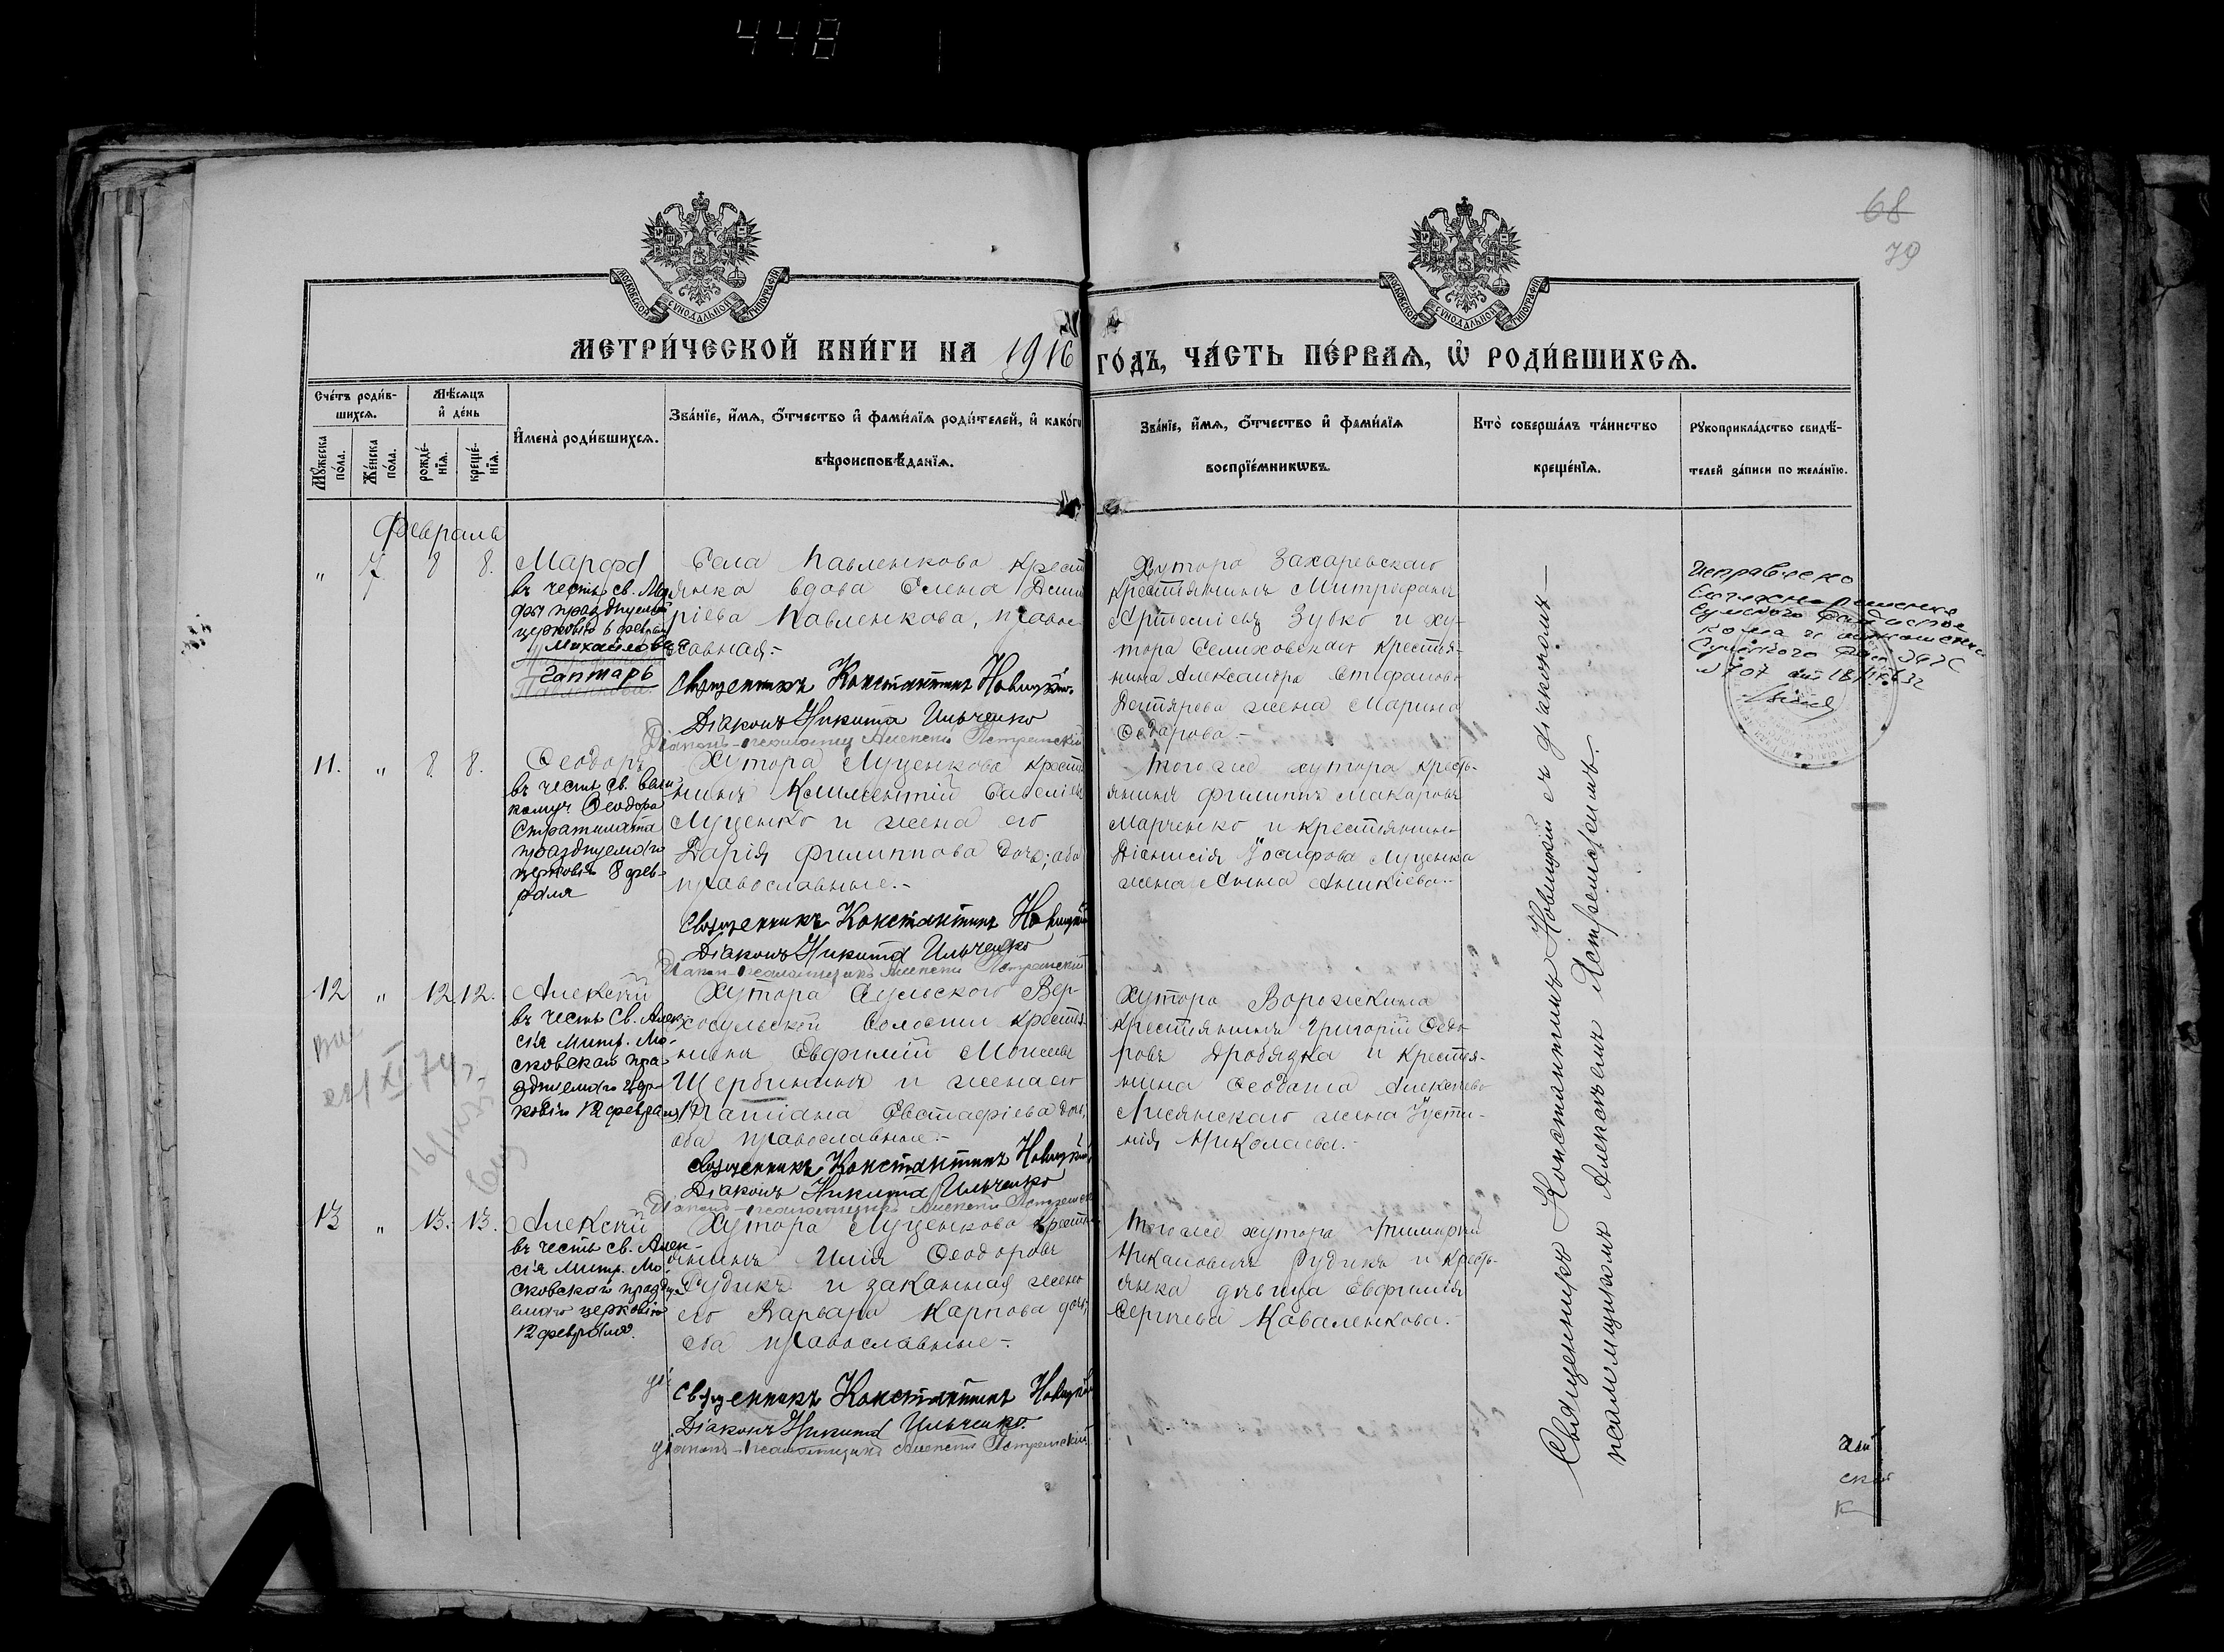 448
68
79
МОСКОВСКОЙ СУНОДАЛЬНОЙ ТИПОГРАФІИ
МОСКОВСКОЙ СУНОДАЛЬНОЙ ТИПОГРАФІИ
МЕТРИ́ЧЕСКОЙ КНИ́ГИ НА 1916 ГО́ДЪ, ЧА́СТЬ ПЕ́РВАѦ, Ѽ РОДИ́ВШИХСѦ.
Сче́тъ роди́в-
шихсѧ.
Мꙋ́жеска
по́ла.
Же́нска
по́ла.
Мѣ́сѧцъ
и҆ де́нь
рожде́-
нїѧ.
креще́-
нїѧ.
И҆мена̀ роди́вшихсѧ.
Зва́нїе, и҆́мѧ, ѻ҆́тчество и҆ фами́лїѧ роди́телей, и҆ како́гѡ
вѣроисповѣ́данїѧ.
Зва́нїе, и҆́мѧ, ѻ҆́тчество и҆ фами́лїѧ
воспрїе́мникѡвъ.
Кто̀ соверша́лъ та́инство
креще́нїѧ.
Рꙋкоприкла́дство свидѣ́-
телей за́писи по жела́нїю.
Февраль
" 7 8 8.
Марфа
въ честь св. Мар
фы празднуемой
церковію 6 феврал
Михайлова
Гаптарь
Села Павленкова крест
янка вдова Елена Дими
ріева Павленкова, правос
лавная.-
Священникъ Константинъ Новицкій.
Діаконъ Никита Ильченко
Діаконъ-псаломщ Алексѣй Ястремскій
Хутора Захаревскаго
крестьянинъ Митрофанъ
Артемьевъ Зубко и ху-
тора Селиховскаго крестья-
нина Александра Стефанова
Дегтярева жена Марина
Ѳедорова-
Исправлено
11. " 8. 8.
Ѳеодоръ
въ честь св. вели
комуч. Ѳеодора
Стратилата
празднуемаго
церковію 8 фев-
раля
Хутора Луценкова крестья
нинъ Климентій Савеліевъ
Луценко и жена его
Дарія Филиппова дочь; оба
православные.-
Священникъ Константинъ Новицкій
Діаконъ Никита Ильченко
Діаконъ-псаломщикъ Алексѣй Ястремскій
Того же хутора кресть-
янинъ Филиппъ Макаровъ
Марченко и крестьянина
Діонисія Іосифова Луценка
жена Анна Аникіева.-
12 " 12 12.
Алексій
въ честь св. Алек
сія Митр. Мо-
сковскаго пра-
зднуемаго цер-
ковію 12 февраля
Хутора Сульскаго Вер-
хосульской волости крестья-
нинъ Евфимій Моисеевъ
Щербининъ и жена его
Татіана Евстафіева дочь,
оба православные.-
Священникъ Константинъ Новицкій
Діаконъ Никита Ильченко
Діаконъ-псаломщикъ Алексѣй Ястремскій
Хутора Ворожкина
крестьянинъ Григорій Ѳедо-
ровъ Дробязка и крестья-
нина Ѳеодота Алексѣева
Лисянскаго жена Іусти-
нія Николаева.-
13 " 13. 13.
Алексій
въ честь св. Алек-
сія Митр. Мо-
сковскаго празд
емаго церковію
12 февраля.
Хутора Луценкова крестья
янинъ Илія Ѳеодоровъ
Рудикъ и законная жена
его Варвара Карпова дочь,
оба православные-.
Священникъ Константинъ Новицкій
Діаконъ Никита Ильченко.
діаконъ-псаломщикъ Алексѣй Ястремскій
Того же хутора Тимофей
Рудикъ и кресть-
янка дѣвица Евфимія
Сергѣева Коваленкова.-
Священникъ Константинъ Новицкій съ діакономъ-
псаломщикомъ Алексѣемъ Ястремскимъ.